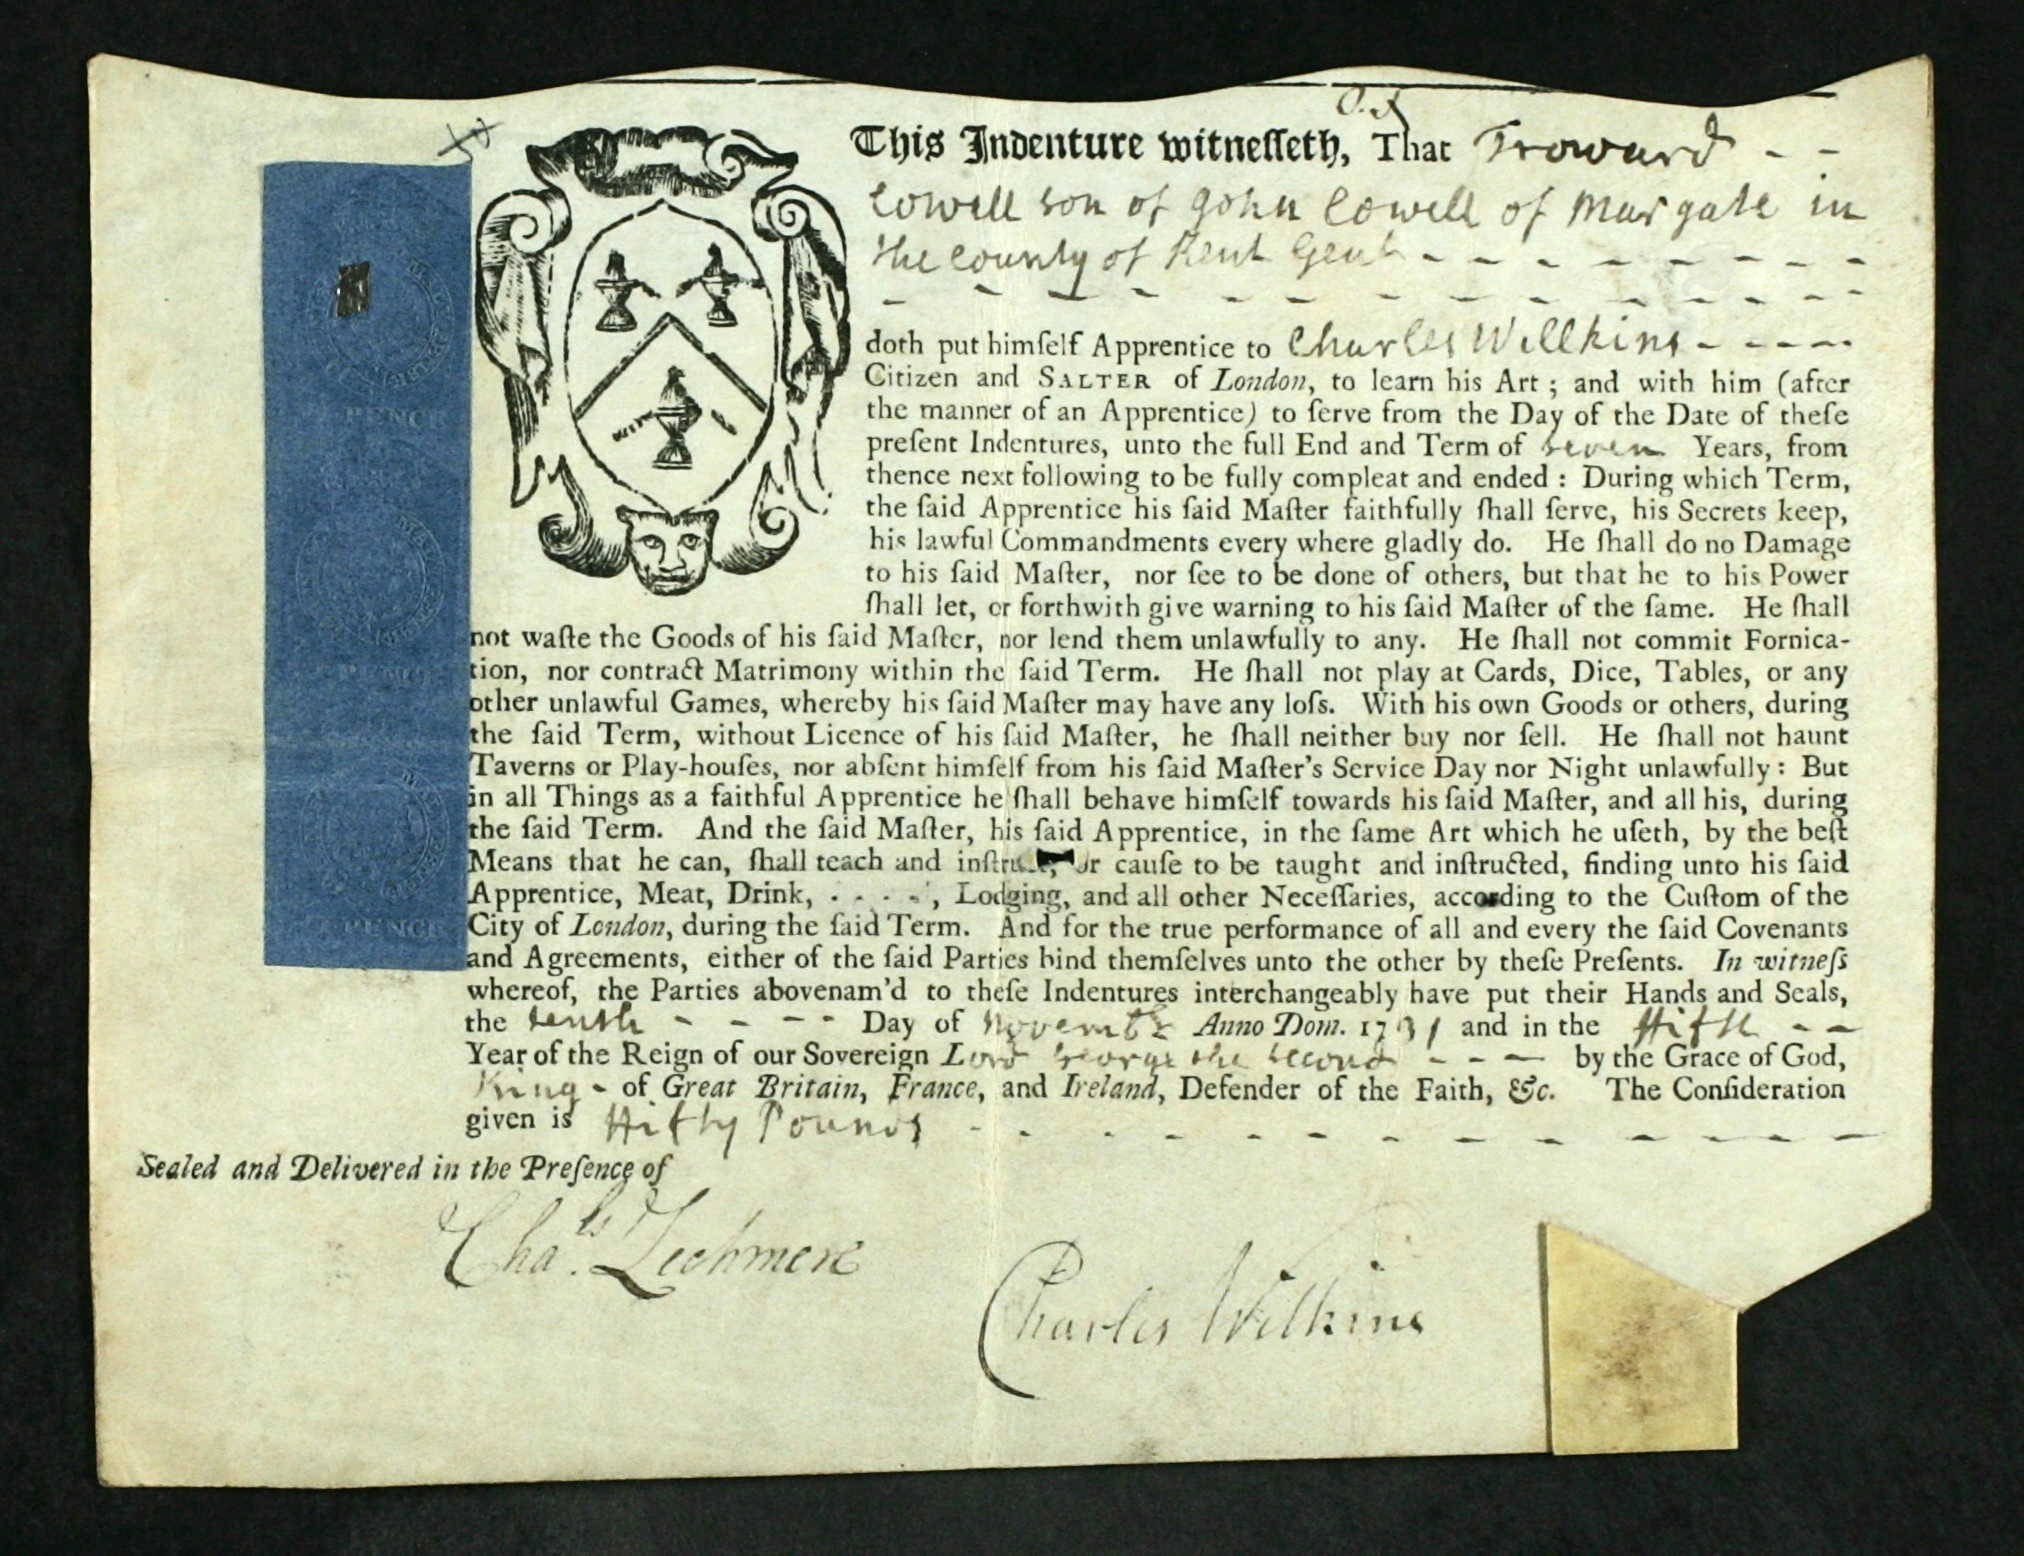 This Indenture witneſſeth, That Troward - -
Cowell son of John Cowell of Margate in
the County of Kent Gent - - - - - - - - -
doth put himſelf Apprentice to Charles Willkins - - - - -
Citizen and SALTER of London, to learn his Art ; and with him (after
the manner of an Apprentice) to ſerve from the Day of the Date of theſe
preſent Indentures, unto the full End and Term of seven Years, from
thence next following to be fully compleat and ended : During which Term,
the ſaid Apprentice his ſaid Maſter faithfully ſhall ſerve, his Secrets keep,
his lawful Commandments every where gladly do. He ſhall do no Damage
to his ſaid Maſter, nor ſee to be done of others, but that he to his Power
ſhall let, or forthwith give warning to his ſaid Maſter of the ſame. He ſhall
not waſte the Goods of his ſaid Maſter, nor lend them unlawfully to any. He ſhall not commit Fornica-
tion, nor contract Matrimony within the ſaid Term. He ſhall not play at Cards, Dice, Tables, or any
other unlawful Games, whereby his ſaid Maſter may have any loſs. With his own Goods or others, during
the ſaid Term, without Licence of his ſaid Maſter, he ſhall neither buy nor ſell. He ſhall not haunt
Taverns or Play-houſes, nor abſent himſelf from his ſaid Maſter's Service Day nor Night unlawfully : But
in all Things as a faithful Apprentice he ſhall behave himſelf towards his ſaid Maſter, and all his, during
the ſaid Term. And the ſaid Maſter, his ſaid Apprentice, in the ſame Art which he uſeth, by the beſt
Means that he can, ſhall teach and inſtruct, or cauſe to be taught and inſtructed, finding unto his ſaid
Apprentice, Meat, Drink, . . . . , Lodging, and all other Neceſſaries, according to the Cuſtom of the
City of London, during the ſaid Term. And for the true performance of all and every the ſaid Covenants
and Agreements, either of the ſaid Parties bind themſelves unto the other by theſe Preſents. In witneſs
whereof, the Parties abovenam'd to theſe Indentures interchangeably have put their Hands and Seals,
the tenth - - - - Day of Novembr Anno Dom. 1731 and in the ffifth - -
Year of the Reign of our Sovereign Lord George the second - - - by the Grace of God,
King - of Great Britain, France, and Ireland, Defender of the Faith, &c. The Conſideration
given is ffifty Pounds - - - - - - - - - - - -
Sealed and Delivered in the Preſence of
Chals. Lechmere
Charles Wilkins
PENCE
PENCE
PENCE